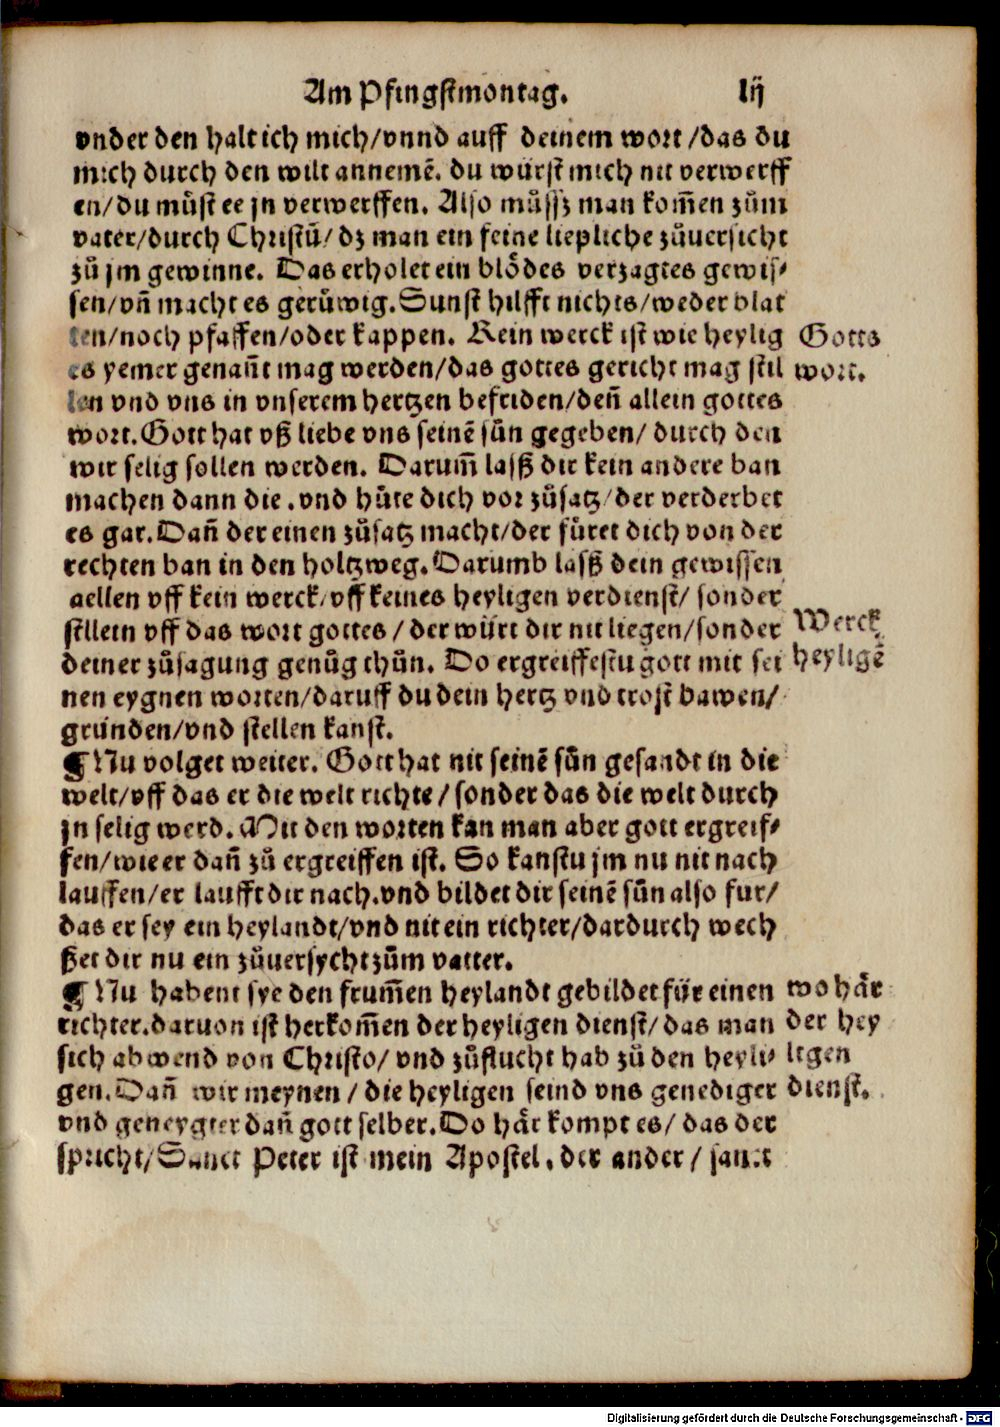 Am Pfingstmontag. lij
vnder den halt ich mich/vnnd auff deinem wort/das du
mich durch den wilt annemẽ. du würst mich nit verwerff
en/du můst ee jn verwerffen. Also můſsz man kom̃en zům
vater/durch Christũ/dz man ein feine liepliche zůuersicht
zů jm gewinne. Das erholet ein blödes verzagtes gewiſ⸗
sen/vñ macht es gerůwig. Sunst hilfft nichts/weder blat
ten/noch pfaffen/oder kappen. Kein werck ist wie heylig
es yemer genañt mag werden/das gottes gericht mag stil
len vnd vns in vnserem hertzen befriden/deñ allein gottes
wort. Gott hat vß liebe vns seinẽ sůn gegeben/durch den
wir selig sollen werden. Darum̃ laſß dir kein andere ban
machen dann die. vnd hůte dich vor zůsatz/der verderbet
es gar. Dañ der einen zůsatz macht/der fůret dich von der
rechten ban in den holtzweg. Darumb laſß dein gewissen
aellen vff kein werck/vff keines heyligen verdienst/sonder
stllein vff das wort gottes/der würt dir nit liegen/sonder
deiner zůsagung genůg thůn. Do ergreiffestu gott mit sei
nen eygnen worten/daruff du dein hertz vnd trost bawen/
gründen/vnd stellen kanst.
¶ Nu volget weiter. Gott hat nit seinẽ sůn gesandt in die
welt/vff das er die welt richte/sonder das die welt durch
jn selig werd. Mit den worten kan man aber gott ergreif⸗
fen/wie er dañ zů ergreiffen ist. So kanstu jm nu nit nach
lauffen/er laufft dir nach. vnd bildet dir seinẽ sůn also fur/
das er sey ein heylandt/vnd nit ein richter/dardurch wech
ßet dir nu ein zůuersycht zům vatter.
¶ Nu habent sye den frum̃en heylandt gebildet für einen
richter. daruon ist herkom̃en der heyligen dienst/das man
sich abwend von Christo/vnd zůflucht hab zů den heyli⸗
gen. Dañ wir meynen/die heyligen seind vns genediger
vnd geneygter dañ gott selber. Do här kompt es/das der
spricht/Sanct Peter ist mein Apostel. der ander/sanct
Gotts
wort.
Werck
heyligẽ
wo här
der hey
ligen
dienst.
Digitalisierung gefördert durch die Deutsche Forschungsgemeinschaft - DFG